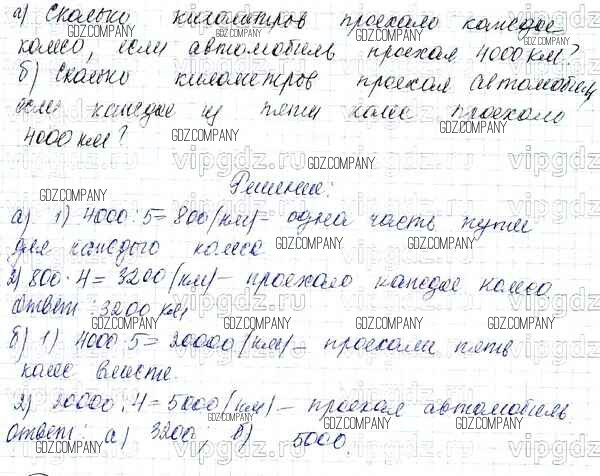 а) Сколько километров проехало каждое
колесо, если автомобиль проехал 4000 км?
б) Сколько километров проехал автомобиль,
если каждое из пяти колес проехало
4000 км?
Решение:
а) 1) 4000 : 5 = 800 (км) – одна часть пути
для каждого колеса
2) 800 · 4 = 3200 (км) – проехало каждое колесо
Ответ: 3200 км.
б) 1) 4000 · 5 = 20000 (км) – проехали пять
колес вместе.
2) 20000 : 4 = 5000 (км) – проехал автомобиль
Ответ: а) 3200; б) 5000.